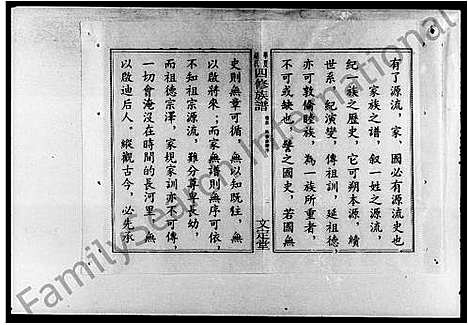 有了源流，家、國必有源流史也
家族之譜，叙一姓之源流，
紀一族之歷史，它可朔本源，續
世系，紀演變，傳祖訓，延祖德
亦可敦倫睦族，為一族所重者，
不可或缺也。譬之國史，若國無
四修族譜
文定堂
史則無章可循，無以知既往，無
以啟將來；而家無譜則無序可依，
不知祖宗源流，難分尊卑長幼，
而祖德宗澤，家規家訓亦不可傳，
一切會淹沒在時間的長河里，無
以啟迪后人。縱觀古今，必先承
FamilySearch International